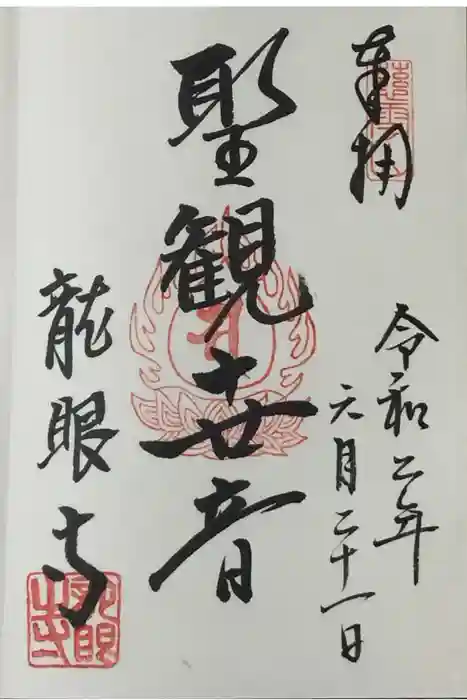 奉拝
令和二年
六月二十一日
聖観世音
龍眼寺